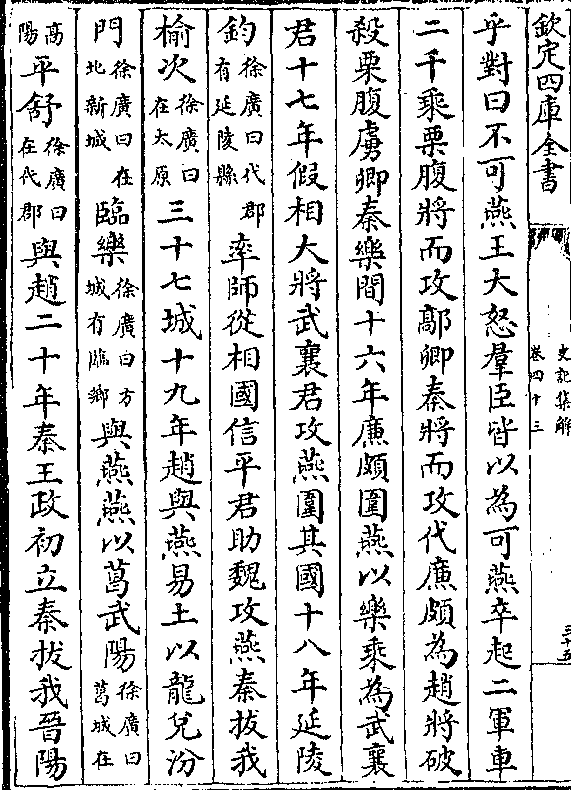 欽定四庫全書
史記集解
卷四十三
三十五
乎對曰不可燕王大怒羣臣皆以為可燕卒起二軍車
二千乘栗腹將而攻鄗卿秦將而攻代廉頗為趙將破
殺栗腹虜卿秦樂間十六年廉頗圍燕以樂乘為武襄
君十七年假相大將武襄君攻燕圍其國十八年延陵
鈞徐廣曰代郡有延陵縣率師從相國信平君助魏攻燕秦拔我
榆次徐廣曰在太原三十七城十九年趙與燕易土以龍兌汾
門徐廣曰在北新城臨樂徐廣曰方城有臨鄉與燕燕以葛武陽徐廣曰葛城在
高陽平舒徐廣曰在代郡與趙二十年秦王政初立秦拔我晉陽